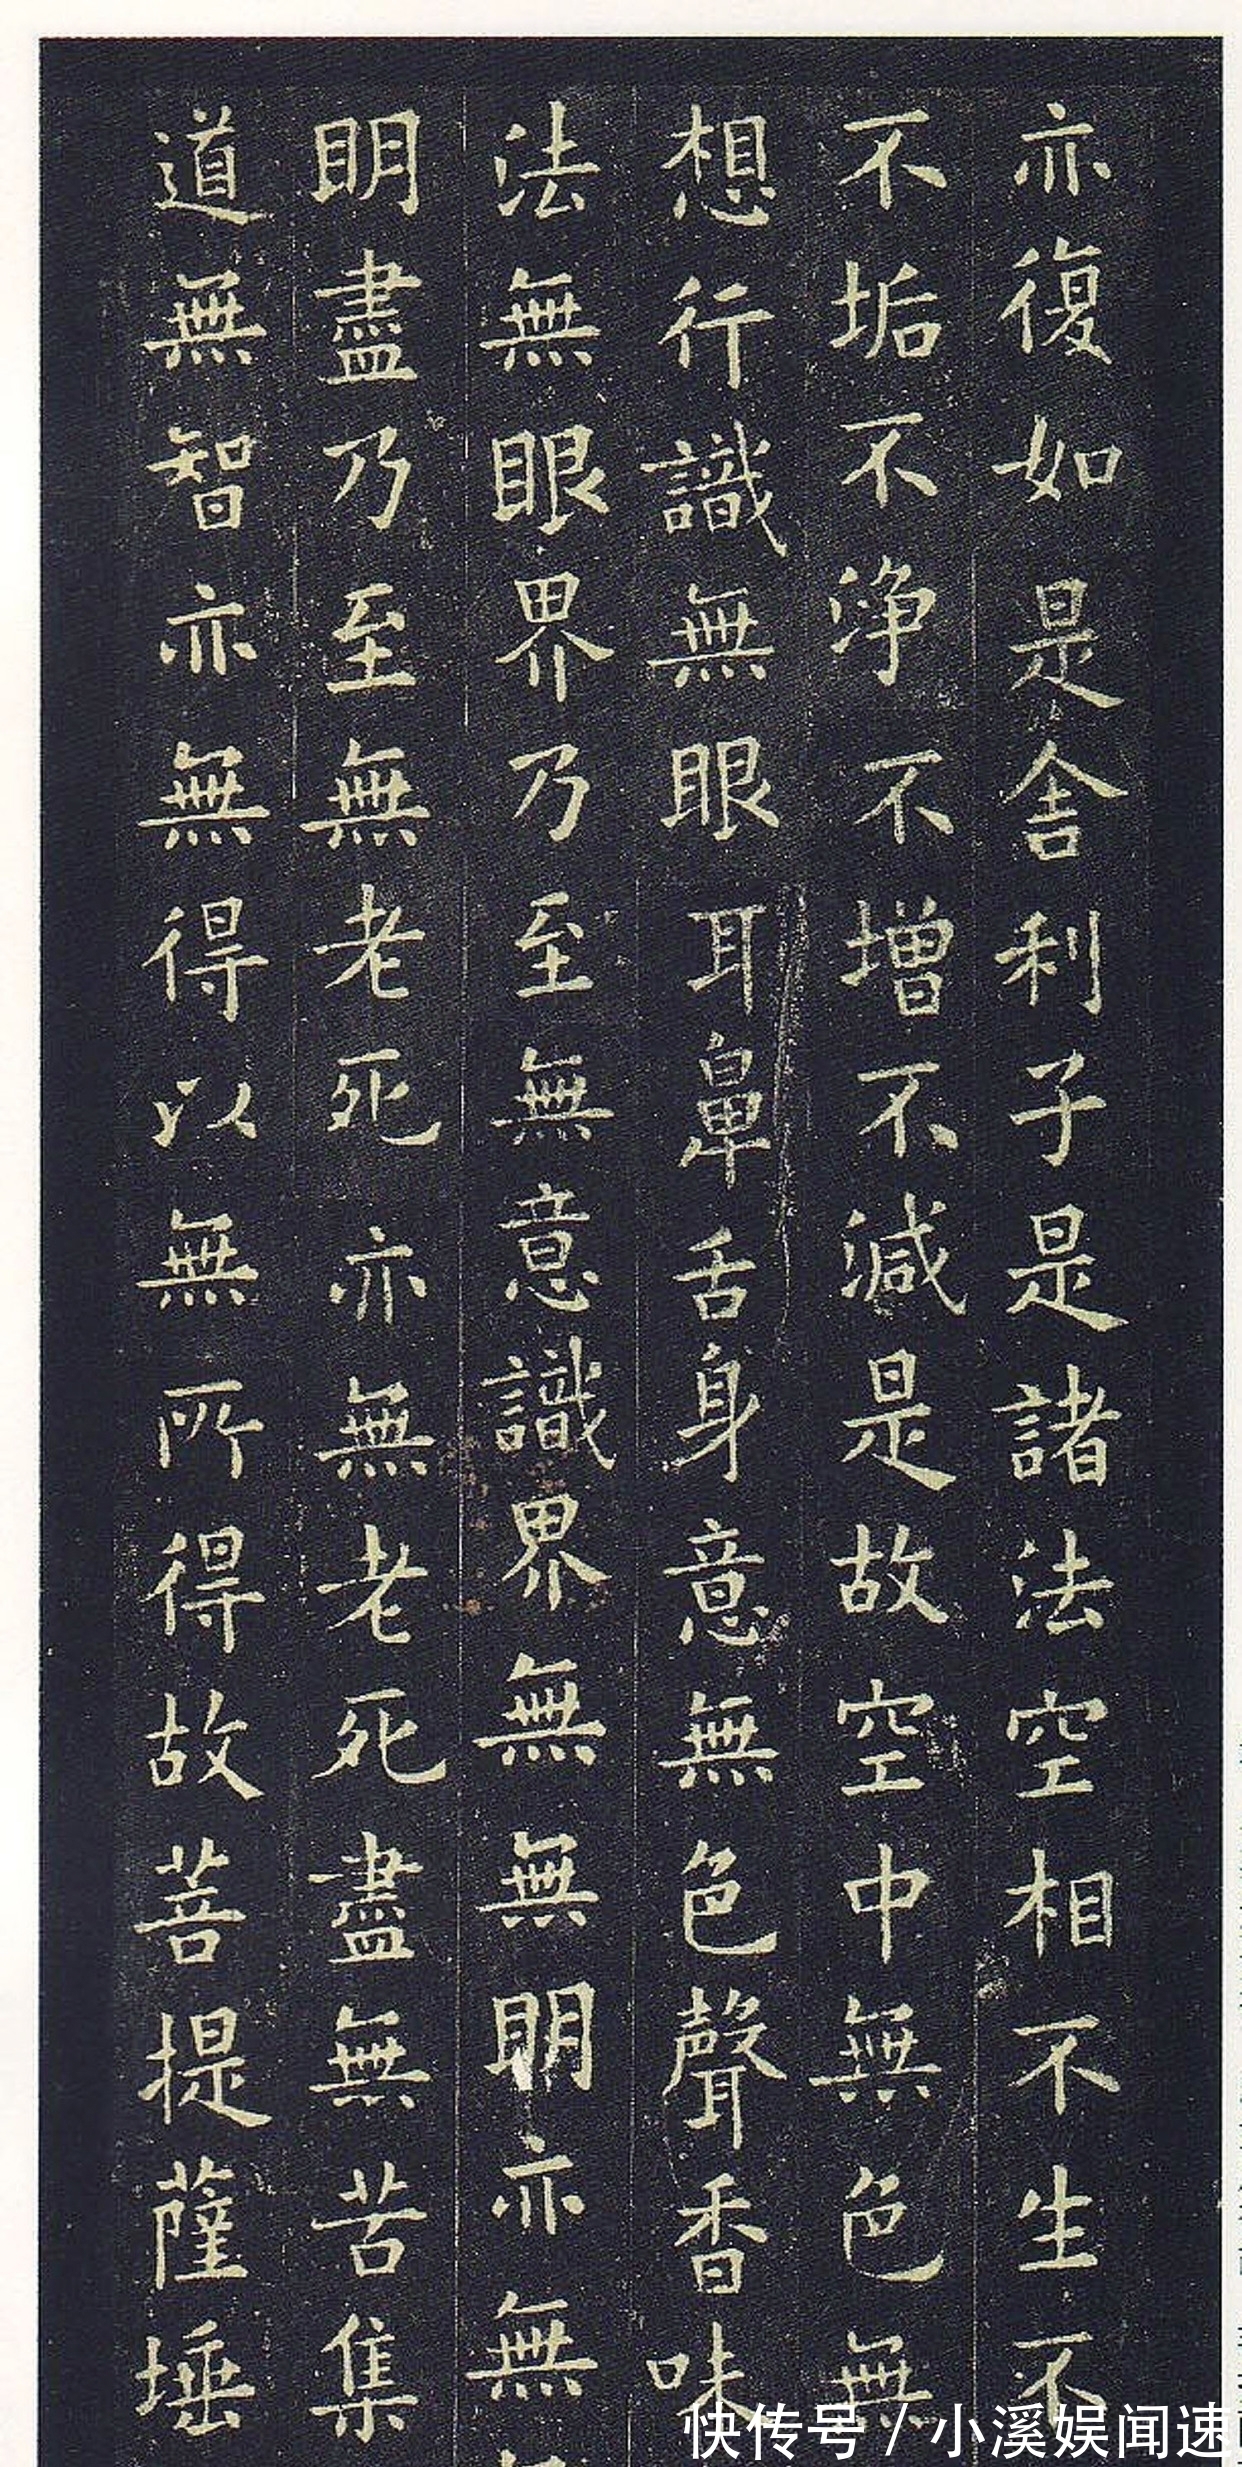 亦復如是舍利子是諸法空相不生不
不垢不淨不增不減是故空中無色無
想行識無眼耳鼻舌身意無色聲香味
法無眼界乃至無意識界無無明亦無
明盡乃至無老死亦無老死盡無苦集
道無智亦無得以無所得故菩提薩埵
快传号/小溪娱闻速